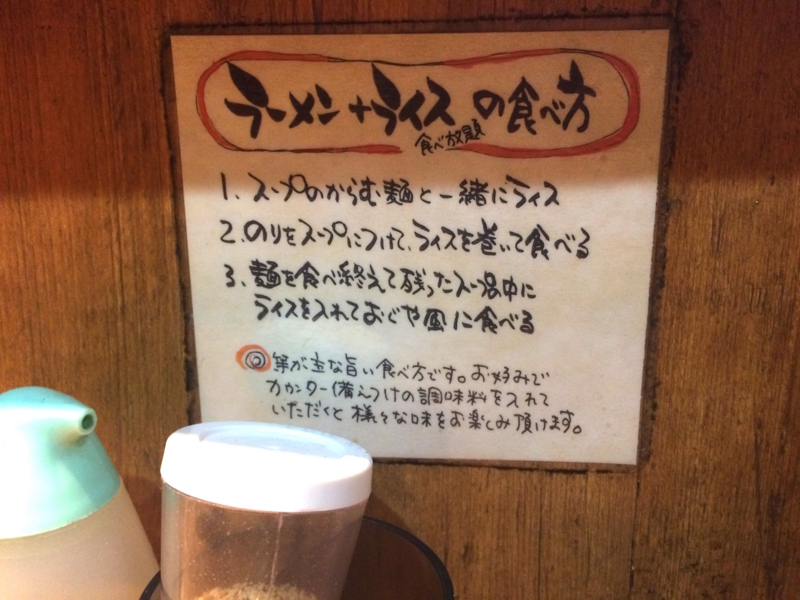 ラーメン+ライスの食べ方
食べ放題
1. スープのからむ麺と一緒にライス
2. のりをスープにつけて、ライスを巻いて食べる
3. 麺を食べ終えて残ったスープの中に
ライスを入れておじや風に食べる
◎等が主な旨い食べ方です。お好みで
カウンター備えつけの調味料を入れて
いただくと様々な味をお楽しみ頂けます。